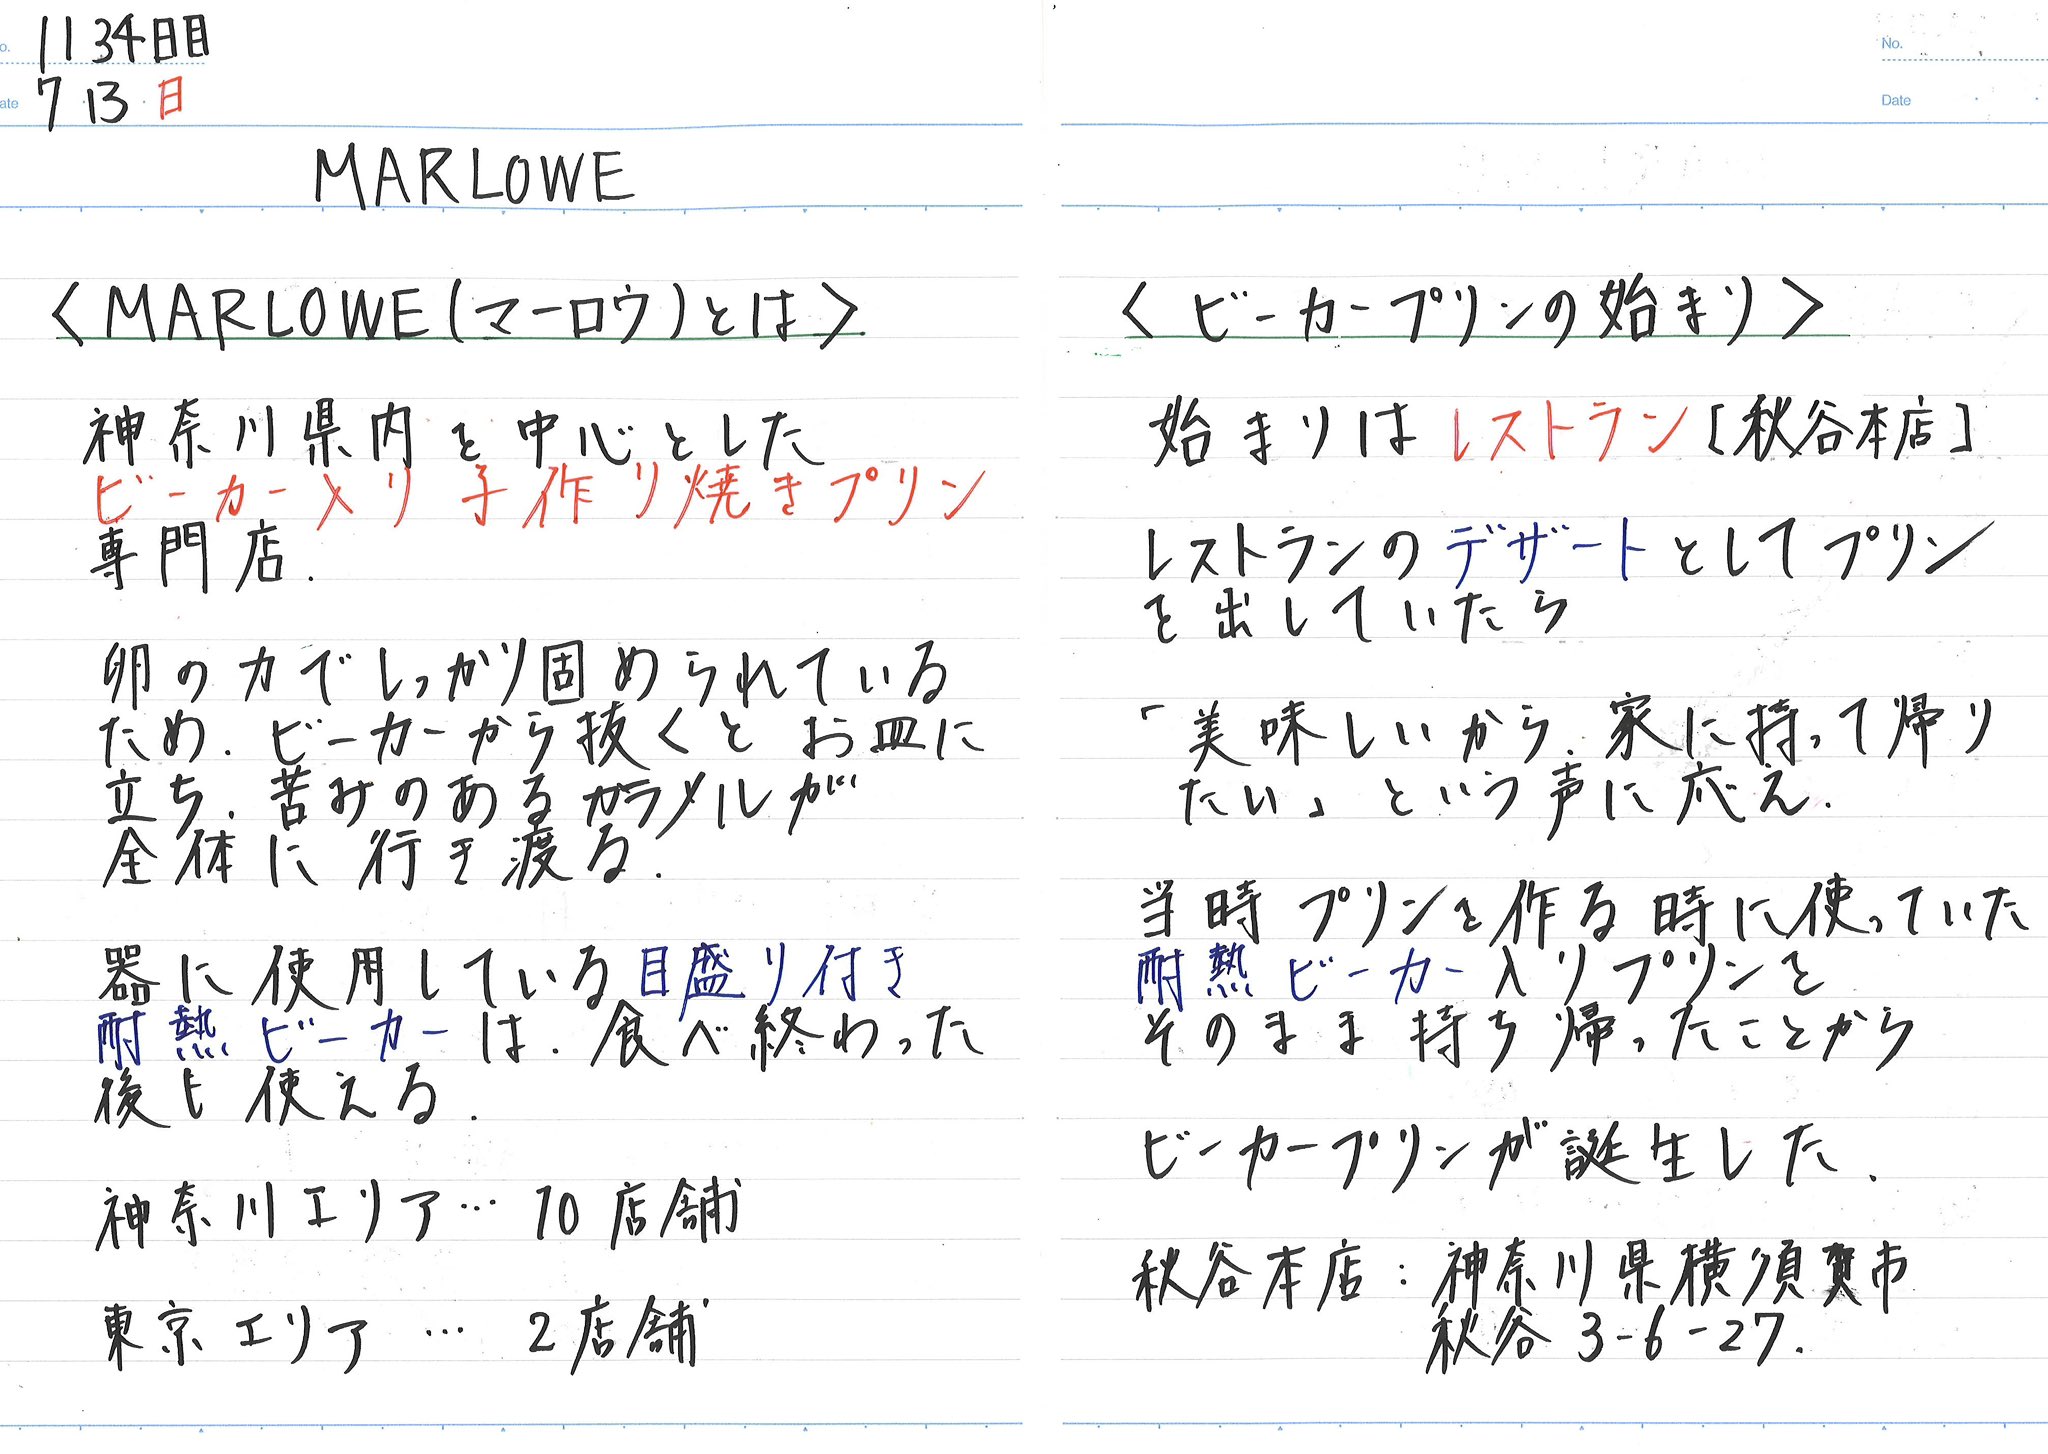 No.
1134日目
Date
7 13 日
MARLOWE
〈MARLOWE(マーロウ)とは〉
神奈川県内を中心とした
ビーカー入り手作り焼きプリン
専門店.
卵の力でしっかり固められている
ため.ビーカーから抜くとお皿に
立ち.苦みのあるカラメルが
全体に行き渡る.
器に使用している目盛り付き
耐熱ビーカーは.食べ終わった
後も使える.
神奈川エリア… 10店舗
東京エリア … 2店舗
No.
Date
〈ビーカープリンの始まり〉
始まりはレストラン[秋谷本店]
レストランのデザートとしてプリン
を出していたら
「美味しいから.家に持って帰り
たい」という声に応え.
当時プリンを作る時に使っていた
耐熱ビーカー入りプリンを
そのまま持ち帰ったことから
ビーカープリンが誕生した.
秋谷本店:神奈川県横須賀市
秋谷3-6-27.